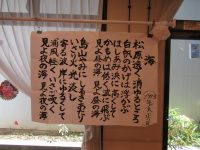 海
松原遠く消ゆるところ
白帆のかげは浮かぶ
ほしあみ浜に高くして
かもめは低く波に飛ぶ
見よ昼の海 見よ昼の海
島山やみにしるきあたり
いさり火 光淡し
寄る波 岸にゆるくして
浦風軽くいさご吹く
見よ夜の海 見よ夜の海